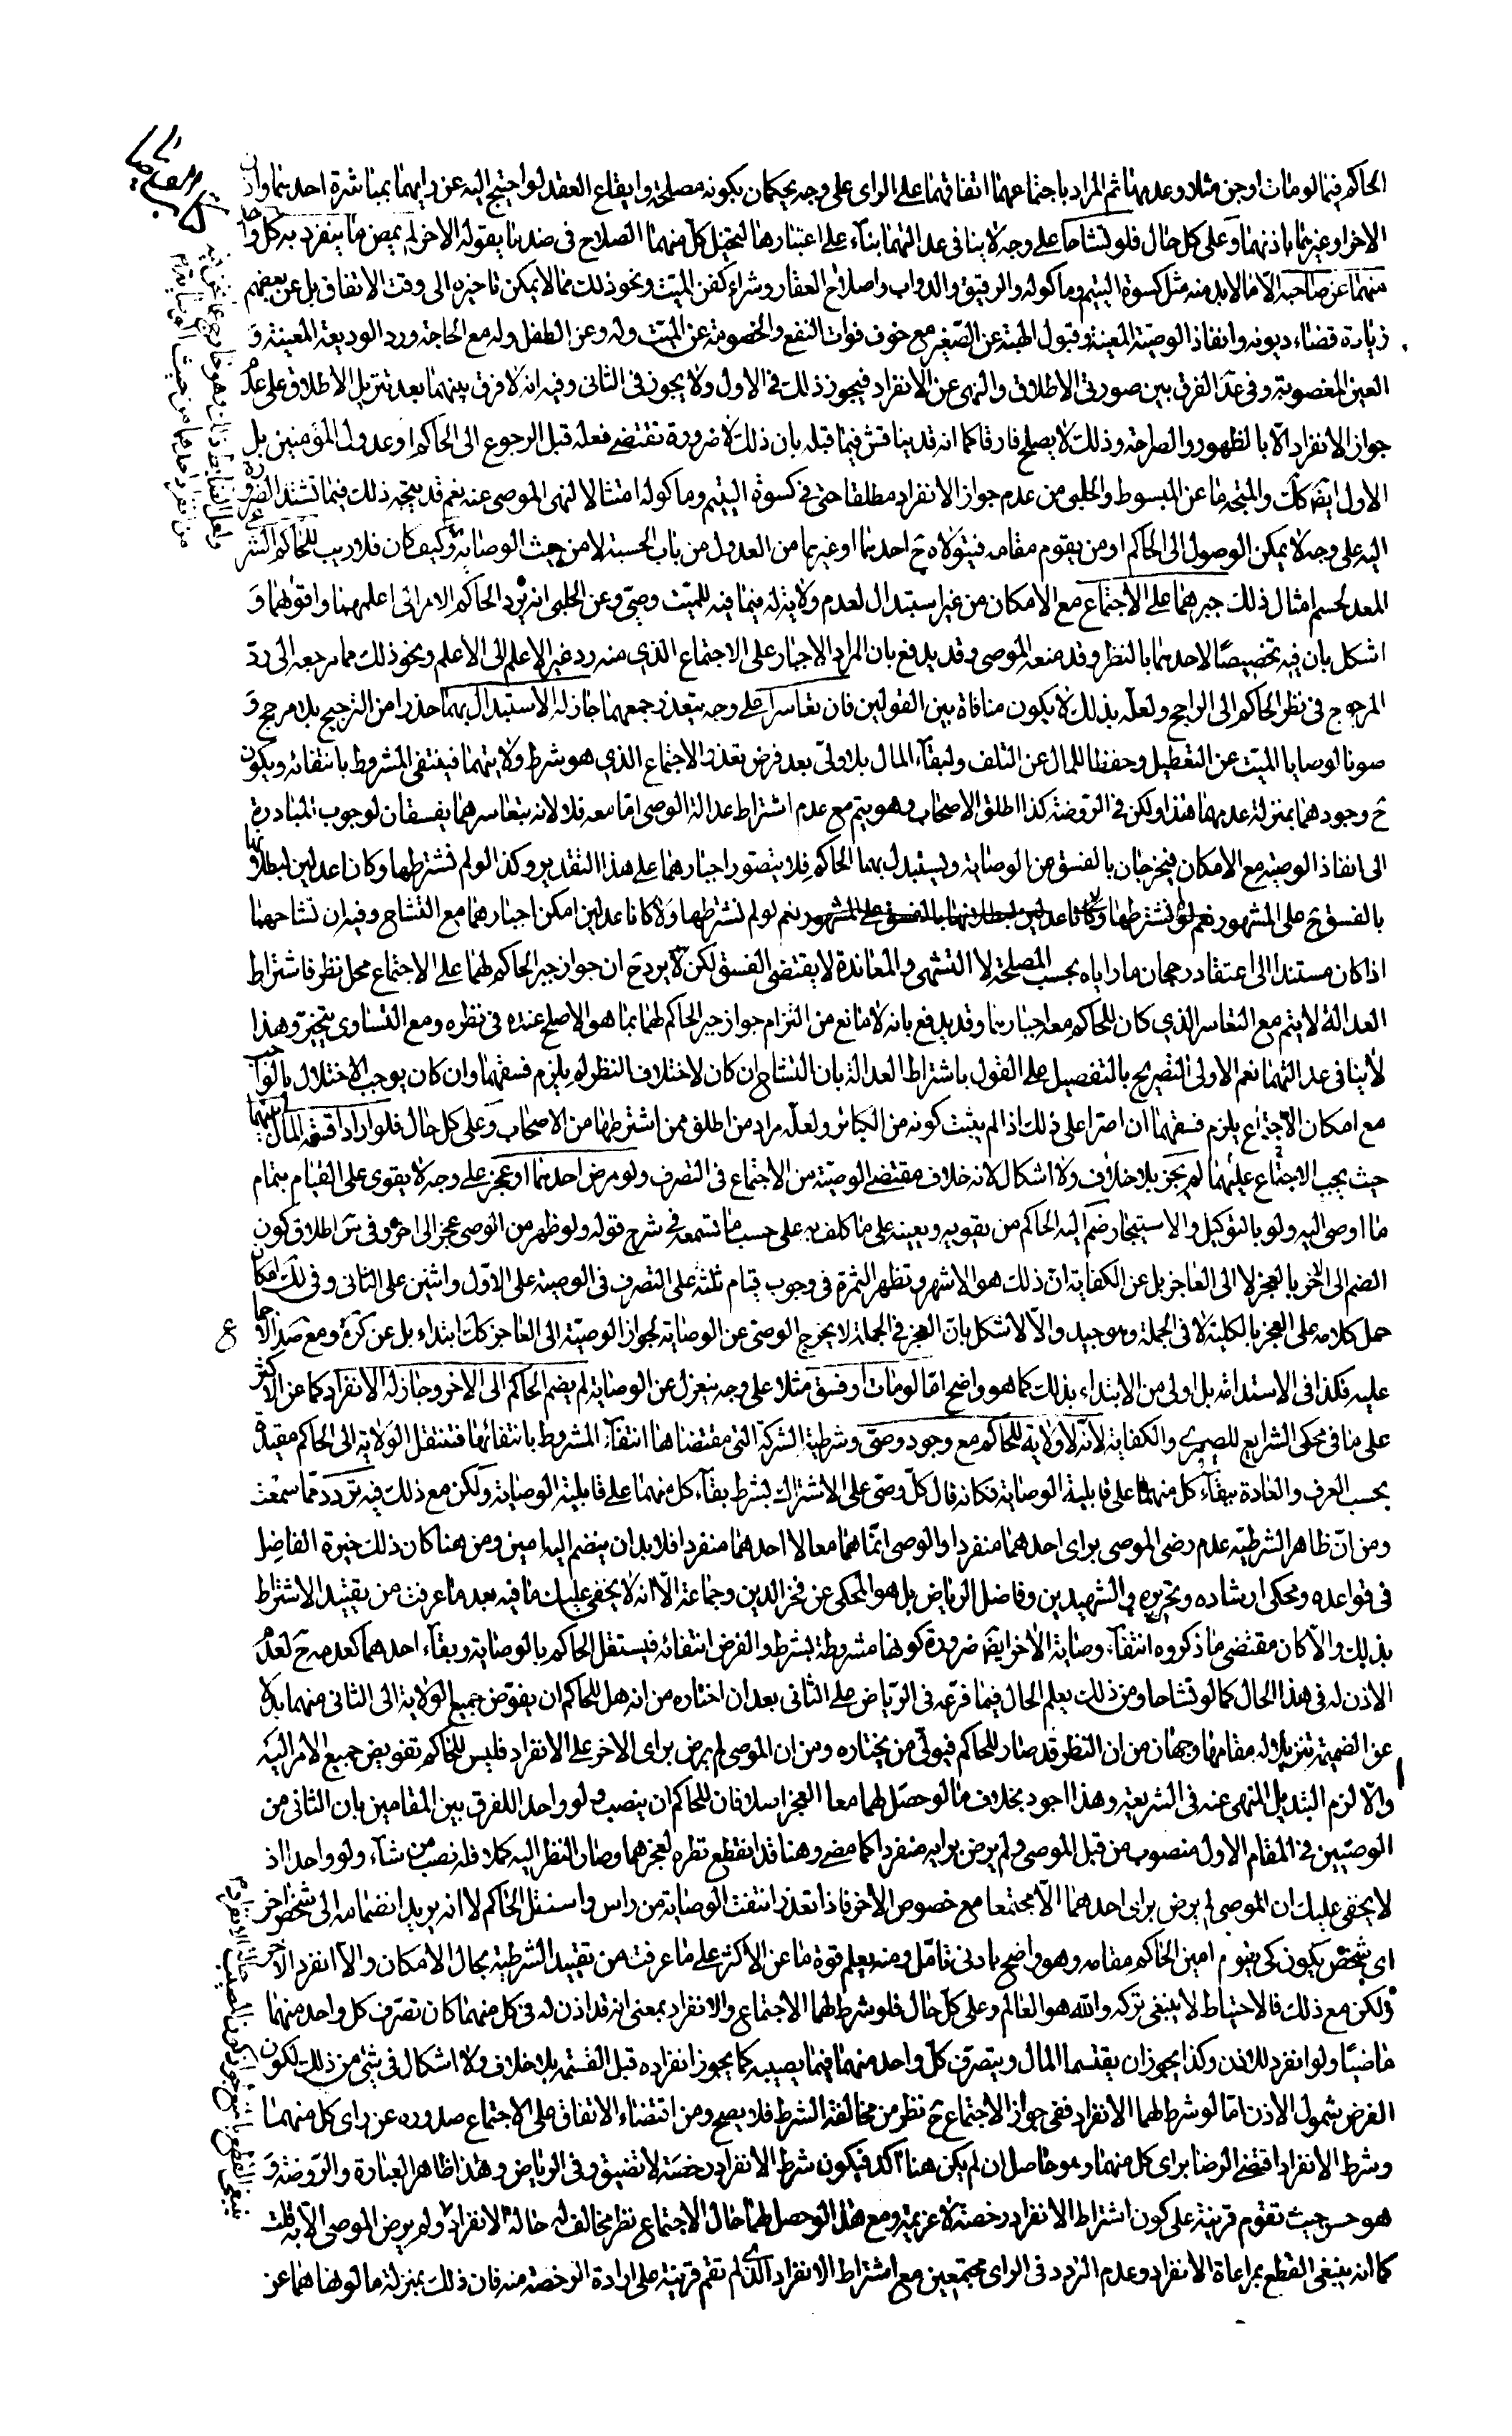 الحاكم فيما لو مات او جن مثلا وعدمهما ثم المراد باجتماعهما اتفاقهما على الراى على وجه يحكمان بكونه مصلحة وايقاع العقد لو احتيج اليه عن رايهما بمباشرة احدهما واذن
الاخر او غيرهما باذنهما وعلى كل حال فلو تشاحا على وجه لا ينافى عدالتهما بناء على اعتبارها لتخيل كل منهما الصلاح فى ضد ما يقوله الاخر لم يمض ما ينفرد به كل واحد
منهما عن صاحبه الا ما لا بد منه مثل كسوة اليتيم وماكوله والرقيق والدواب واصلاح العقار وشراء كفن الميت ونحو ذلك مما لا يمكن تاخيره الى وقت الاتفاق بل عن بعضهم
زيادة قضاء ديونه وانفاذ الوصية المعينة وقبول الهبة عن الصغير مع خوف فوات النفع والخصومة عن الميت وله وعن الطفل وله مع الحاجة ورد الوديعة المعينة و
العين المغصوبة وفى عد الفرق بين صورتى الاطلاق والنهى عن الانفراد فيجوز ذلك فى الاول ولا يجوز فى الثانى وفيه انه لا فرق بينهما بعد تنزيل الاطلاق على عدم
جواز الانفراد الا بالظهور والصراحة وذلك لا يصلح فارقا كما انه قد يناقش فيما قبله بان ذلك لا ضرورة تقتضى فعله قبل الرجوع الى الحاكم او عدول المؤمنين بل
الاول ايضا كك والمتجه ما عن المبسوط والحلى من عدم جواز الانفراد مطلقا حتى فى كسوة اليتيم وماكوله امتثالا لنهى الموصى عنه نعم قد يتجه ذلك فيما تشتد الضرورة
اليه على وجه لا يمكن الوصول الى الحاكم او من يقوم مقامه فيتولاه ح احدهما او غيرهما من العدول من باب الحسبة لا من حيث الوصاية وكيف كان فلا ريب للحاكم الشرعى
المعد لحسم امثال ذلك جبرهما على الاجتماع مع الامكان من غير استبدال لعدم ولاية له فيما فيه للميت وصى وعن الحلبى انه يرد الحاكم الامر الى اعلمهما واقواهما و
اشكل بان فيه تخصيصا لاحدهما بالنظر وقد منعه الموصى وقد يدفع بان المراد الاجبار على الاجتماع الذى منه رد غير الاعلم الى الاعلم ونحو ذلك مما مرجعه الى رد
المرجوح فى نظر الحاكم الى الراجح ولعله بذلك لا يكون منافاة بين القولين فان تعاسرا على وجه يتعذر جمعهما جاز له الاستبدال بهما حذرا من الترجيح بلا مرجح و
صونا لوصايا الميت عن التعطيل وحفظا للمال عن التلف ولبقاء المال بلا ولى بعد فرض تعذر الاجتماع الذى هو شرط ولايتهما فينتفى المشروط بانتفائه ويكون
ح وجودهما بمنزلة عدمهما هذا ولكن فى الروضة كذا اطلق الاصحاب وهو يتم مع عدم اشتراط عدالة الوصى اما معه فلا لانه بتعاسرهما يفسقان لوجوب المبادرة
الى انفاذ الوصية مع الامكان فيخرجان بالفسق من الوصاية ويستبدل بهما الحاكم فلا يتصور اجبارهما على هذا التقدير وكذا لو لم نشترطها وكانا عدلين لبطلانها
بالفسق ح على المشهور نعم لو لم نشترطها ولا كانا عدلين امكن اجبارهما مع التشاح وفيه ان تشاحهما
اذا كان مستندا الى اعتقاد رجحان ما راياه بحسب المصلحة لا التشهى والمعاندة لا يقتضى الفسق لكن لا يرد ح ان جواز جبر الحاكم لهما على الاجتماع محل نظر فاشتراط
العدالة لا يتم مع التعاسر الذى كان للحاكم معه اجبارهما وقد يدفع بانه لا مانع من التزام جواز جبر الحاكم لهما بما هو الاصلح عنده فى نظره ومع التساوى يتخير وهذا
لا ينافى عدالتهما نعم الاولى التصريح بالتفصيل على القول باشتراط العدالة بان التشاح ان كان لاختلاف النظر لم يلزم فسقهما وان كان يوجب الاختلال بالواجب
مع امكان الاجتماع يلزم فسقهما ان اصرا على ذلك اذا لم يثبت كونه من الكبائر ولعله مراد من اطلق ممن اشترطها من الاصحاب وعلى كل حال فلو ارادا قسمة المال بينهما
حيث يجب الاجتماع عليهما لم يجز بلا خلاف ولا اشكال لانه خلاف مقتضى الوصية من الاجتماع فى التصرف ولو مرض احدهما او عجز على وجه لا يقوى على القيام بتمام
ما اوصى اليه ولو بالتوكيل والاستيجار ضم اليه الحاكم من يقويه ويعينه على ما كلف به على حسب ما تسمعه فى شرح قوله ولو ظهر من الوصى عجز الى اخره وفى اطلاق كون
الضم الى الاخر بالعجز لا الى العاجز بل عن الكفاية ان ذلك هو الاشهر وتظهر الثمرة فى وجوب قيام ثلثة على التصرف فى الوصية على الاول واثنين على الثانى وفى لك امكان
حمل كلامه على العجز بالكلية لا فى الجملة وهو جيد والا لاشكل بان العجز فى الجملة لا يخرج الوصى عن الوصاية لجواز الوصية الى العاجز كك ابتداء بل عن كره ومع صد الاجماع
عليه فكذا فى الاستدامة بل اولى من الابتداء بذلك كما هو واضح اما لو مات او فسق مثلا على وجه ينعزل عن الوصاية لم يضم الحاكم الى الاخر وجاز له الانفراد كما عن الاكثر
على ما فى محكى الشرايع للصيمرى والكفاية لانه لا ولاية للحاكم مع وجود وصى وشرطية الشركة التى مقتضاها انتفاء المشروط بانتفائها فتنتقل الولاية الى الحاكم مقيدة
بحسب العرف والعادة ببقاء كل منهما على قابلية الوصاية فكانه قال كل وصى على الاشتراك بشرط بقاء كل منهما على قابلية الوصاية ولكن مع ذلك فيه تردد مما سمعت
ومن ان ظاهر الشرطية عدم رضى الموصى براى احدهما منفردا والوصى انما هما معا لا احدهما منفردا فلا بد ان ينضم اليه امين ومن هنا كان ذلك خيرة الفاضل
فى قواعده ومحكى ارشاده وتحريره والشهيدين وفاضل الرياض بل هو المحكى عن فخر الدين وجماعة الا انه لا يخفى عليك ما فيه بعد ما عرفت من تقييد الاشتراط
بذلك والا كان مقتضى ما ذكروه انتفاء وصاية الاخر ايضا ضرورة كونها مشروطة بشرط والفرض انتفائه فيستقل الحاكم بالوصاية وبقاء احدهما كعدمه ح لعدم
الاذن له فى هذا الحال كما لو تشاحا ومن ذلك يعلم الحال فيما فرعه فى الرياض على الثانى بعد ان اختاره من انه هل للحاكم ان يفوض جميع الولاية الى الثانى منهما بدلا
عن الضميمة تنزيلا له مقامها وجهان من ان النظر قد صار للحاكم فيولى من يختاره ومن ان الموصى لم يرض براى الاخر على الانفراد فليس للحاكم تفويض جميع الامر اليه
والا لزم التبديل المنهى عنه فى الشريعة وهذا اجود بخلاف ما لو حصل لهما معا العجز اصلا فان للحاكم ان ينصب ولو واحدا للفرق بين المقامين بان الثانى من
الوصيين فى المقام الاول منصوب من قبل الموصى ولم يرض برايه منفردا كما مضى وهنا قد انقطع نظره لعجزهما وصار النظر اليه كملا فله نصب من شاء ولو واحدا اذ
لا يخفى عليك ان الموصى لم يرض براى احدهما الا مجتمعا مع خصوص الاخر فاذا تعذر انتفت الوصاية من راس واستقل الحاكم لا انه يريد انضمامه الى شخص اخر
اى شخص يكون كى يقوم امين الحاكم مقامه وهو واضح بادنى تامل ومنه يعلم قوة ما عن الاكثر على ما عرفت من تقييد الشرطية بحال الامكان والا انفرد الاخر
ولكن مع ذلك فالاحتياط لا ينبغى تركه والله هو العالم وعلى كل حال فلو شرط لهما الاجتماع والانفراد بمعنى انه قد اذن له فى كل منهما كان تصرف كل واحد منهما
ماضيا ولو انفرد للاذن وكذا يجوز ان يقتسما المال ويتصرف كل واحد منهما فيما يصيبه كما يجوز انفراده قبل القسمة بلا خلاف ولا اشكال فى شئ من ذلك لكون
الفرض شمول الاذن اما لو شرط لهما الانفراد ففى جواز الاجتماع ح نظر من مخالفة الشرط فلا يصح ومن اقتضاء الاتفاق على الاجتماع صدوره عن راى كل منهما
وشرط الانفراد اقتضى الرضا براى كل منهما وهو حاصل ان لم يكن هنا اكد فيكون شرط الانفراد رخصة لا تضييق وفى الرياض وهذا ظاهر العبارة والروضة و
هو حسن حيث تقوم قرينة على كون اشتراط الانفراد رخصة لا عزيمة ومع هذا لو حصل لهما حال الاجتماع نظر مخالف له حالة الانفراد ولم يرض الموصى الا به قلت
كما انه ينبغى القطع بمراعاة الانفراد وعدم التردد فى الراى مجتمعين مع اشتراط الانفراد الذى لم تقم قرينة على ارادة الرخصة منه فان ذلك بمنزلة ما لو نهاهما عن